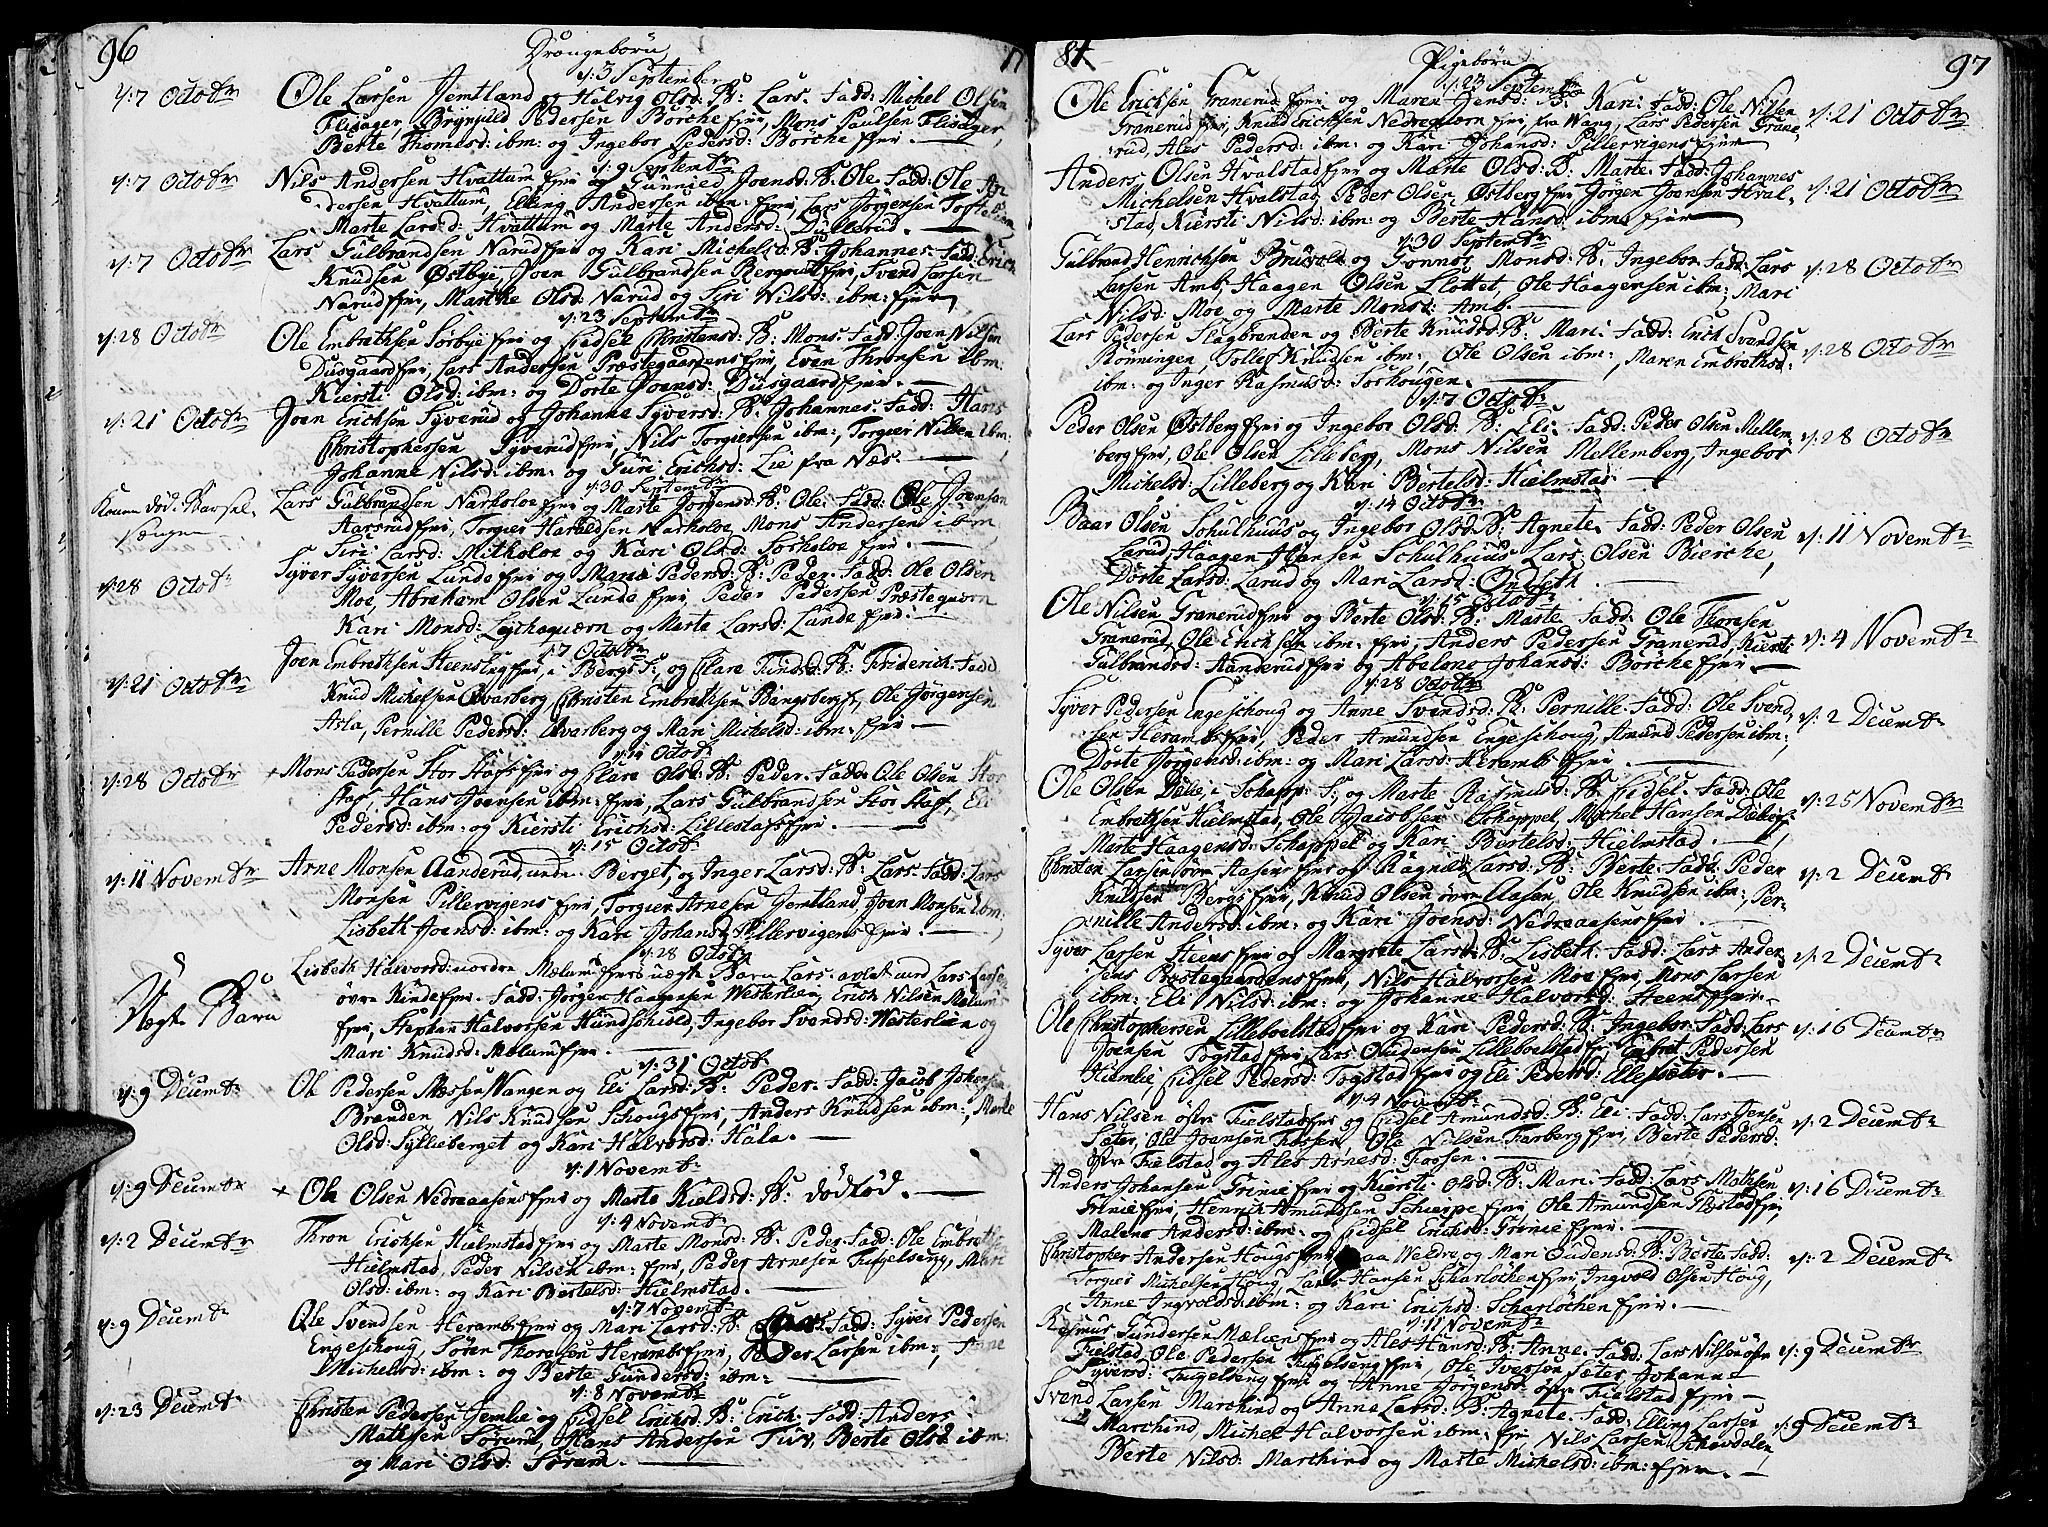 96
Drængebørn
17
d: 3 September
d: 7 Octobr
Ole Larsen Jemtland og Helvig Olsd: B: Lars. Fadd: Michel Olsen
Flisager, Brynild Pedersen Borche Ejer, Mons Paulsen Flisager,
Berte Thomsd: ibm: og Ingebor Pedersd: Borche Ejer. —
d: 9 Septembr
d: 7 Octobr
Nils Andersen Hvattum Ejer og Gunnild Joensd: B: Ole. Fadd: Ole An-
dersen Hvattum, Elling Andersen ibm: Ejer, Lars Jørgensen
Marte Larsd: Hvattum og Marte Andersd: Dullerud. —
d: 7 Octobr
Lars Gulbrandsen Narud Ejer og Kari Michelsd: B: Johannes. Fadd: Erich
Knudsen Østbye, Joen Gulbrandsen Ejer, Svend Larsen
Narud Ejer, Marthe Olsd: Narud og Siri Nilsd: ibm: Ejer
d: 23 Septembr
d: 28 Octobr
Ole Embrethsen Sørbye Ejer og Eidsel Christensd: B: Mons. Fadd: Joen Nilsen
Dusgaard Ejer, Lars Andersen Præstegaardens Ejer, Even Thronsen ibm:
Kiersti Olsd: ibm: og Dorte Joensd: Dusgaard Ejer. —
d: 21 Octobr
Joen Erichsen Syverud og Johanne Syversd: B: Johannes. Fadd: Hans
Christophersen Syverud Ejer, Nils Torgiersen ibm:, Torgier Nilsen ibm:
Johanne Nilsd: ibm: og Turi Erichsd: Lie fra Næs. —
d: 30 Septembr
Konen død i Barsel-
sængen
Lars Gulbrandsen Narholoe Ejer og Marte Jørgensd: B: Ole. Fadd: Ole Joensen
Aarsrud Ejer, Torgier Haraldsen Narholoe, Mons Andersen ibm
Siri Larsd: Mitholoe og Kari Olsd: Sørholoe Ejer. —
d: 28 Octobr
Syver Syversen Lunde Ejer og Mari Pedersd: B: Peder. Fadd: Ole Olsen
Moe, Abraham Olsen Lunde Ejer Peder Pedersen Præstequern
Kari Monsd: og Marte Larsd: Lunde Ejer. —
d: 7 Octobr
d: 21 Octobr
Joen Embrethsen Steenslug Ejer, i Bergs S: og Clare Evensd: B: Friderich. Fadd
Knud Michelsen Qvarberg, Christen Embrethsen Bangsberg, Ole Jørgensen
Asta, Pernille Pedersd: Qvarberg og Mari Michelsd: ibm: Ejer —
d: 14 Octobr
d: 28 Octobr
+ Mons Pedersen Stor Stafs Ejer og Clare Olsd: B: Peder. Fadd: Ole Olsen Stor
Staf, Hans Joensen ibm: Ejer, Lars Gulbrandsen Stor Staf, Eli
Pedersd: ibm: og Kiersti Erichsd: Lillestafs Ejer. —
d: 15 Octobr
d: 11 Novembr
Arne Monsen Aanderud, under Berget, og Inger Larsd: B: Lars. Fadd: Lars
Monsen Pillervigens Ejer, Torgier Arnesen Jemtland, Joen Monsen ibm:
Lisbeth Joensd: ibm: og Kari Johansd: Pillervigens Ejer. —
d: 28 Octobr
Uægte Barn
Lisbeth Halvorsd: nordre Mælum Ejers uægte Barn Lars. avlet med Lars Larsen
øvre Kinde Ejer. Fadd: Jørgen Haagensen Westerlien, Erich Nilsen Mælums
Ejer, Stephan Halvorsen Kundschiold, Ingebor Svendsd: Westerlien og
Mari Knudsd: Mælum Ejer. —
d: 31 Octobr
d: 9 Decembr
Ole Pedersen Mæssen Vangen og Eli Larsd: B: Peder. Fadd: Jacob Johansen
Branden Nils Knudsen Schougs Ejer, Anders Knudsen ibm:, Marte
Olsd: Syllieberget og Kari Halvorsd: Hala. —
d: 1 Novembr
d: 9 Decembr
+ Ole Olsen Nedreaasens Ejer og Marte Kieldsd: B: dødfød. —
d: 4 Novembr
d: 2 Decembr
Thron Erichsen Hielmstad Ejer og Marte Monsd: B: Peder. Fadd: Ole Embreths
Hielmstad, Peder Nilsen ibm: Ejer, Peder Arnesen Fuglseng, Mari
Olsd: ibm: og Kari Bertelsd: Hielmstad. —
d: 7 Novembr
d: 9 Decembr
Ole Svendsen Herambs Ejer og Mari Larsd: B: Lars. Fadd: Syver Pedersen
Engeschoug, Søren Thoresen Herambs Ejer, Peder Larsen ibm:, Anne
Michelsd: ibm: og Berte Gundersd: ibm: —
d: 8 Novembr
d: 23 Decembr
Christen Pedersen Jemlie og Eidsel Erichsd: B: Erich. Fadd: Anders
Mathisen Sørum, Hans Andersen Tuv, Berte Olsd: ibm:
og Mari Olsd: Sørum. —
84
Pigebørn
97
d: 23 Septembr
Ole Erichsen Granerud Ejer og Maren Jensd: B: Kari. Fadd: Ole Nilsen
Granerud Ejer, Knud Erichsen Nedrequern Ejer, fra Wang, Lars Pedersen Grane-
rud, Ales Pedersd: ibm: og Kari Johansd: Pillervigens Ejer
d: 21 Octobr
Anders Olsen Hvalstad Ejer og Marte Olsd: B: Marte. Fadd: Johannes
Michelsen Hvalstad, Peder Olsen Østberg Ejer Jørgen Joensen Hval-
stad, Kiersti Nilsd: ibm: og Berte Hansd: ibm: Ejer
d: 21 Octobr
d: 30 Septembr
Gulbrand Henrichsen Bruvold og Gonnor Monsd: B: Ingebor. Fadd: Lars
Larsen Amb, Haagen Olsen Slottet, Ole Haagensen ibm:, Mari
Nilsd: Moe og Marte Monsd: Amb. —
d: 28 Octobr
Lars Pedersen Flagbranden og Berte Knudsd: B: Mari. Fadd: Erich Svendsen
Rønningen, Tollef Knudsen ibm:, Ole Olsen ibm:, Maren Embrethsd:
ibm: og Inger Rasmusd: Sorhougen. —
d: 28 Octobr
d: 7 Octobr
Peder Olsen Østberg Ejer og Ingebor Olsd: B: Eli. Fadd: Peder Olsen Mellem-
berg Ejer, Ole Olsen Lilleberg, Mons Nilsen Mellemberg, Ingebor
Michelsd: Lilleberg og Kari Bertelsd: Hielmstad. —
d: 28 Octobr
d: 14 Octobr
Baar Olsen Schulhuus og Ingebor Olsd: B: Agnete. Fadd: Peder Olsen
Larud, Haagen Hansen Schulhuus, Lars Olsen Bierche,
Dorte Larsd: Larud og Mari Larsd: Ondseth. —
d: 11 Novembr
d: 15 Octobr
Ole Nilsen Granerud Ejer og Berte Olsd: B: Marte. Fadd: Ole Thoresen
Granerud, Ole Erichsen ibm: Ejer, Anders Pedersen Granerud, Kiersti
Gulbrandsd: Aanderud Ejer og Abelone Johansd: Borche Ejer. —
d: 4 Novembr
d: 28 Octobr
Syver Pedersen Engeschoug og Anne Svendsd: B: Pernille. Fadd: Ole Svend-
sen Herambs Ejer, Peder Amundsen Engeschoug, Amund Pedersen ibm:,
Dorte Jørgensd: ibm: og Mari Larsd: Herambs Ejer. —
d: 2 Decembr
Ole Olsen Dælie, i Schapp: S:, og Marte Rasmusd: B: Eidsel. Fadd: Ole
Embrethsen Hielmstad, Ole Jacobsen Schappel, Michel Hansen
Marte Haagensd: Schappel og Kari Bertelsd: Hielmstad. —
d: 25 Novembr
Christen Larsen øvre Aasens Ejer og Ragnild Larsd: B: Berte. Fadd: Peder
Knudsen Bergs Ejer, Knud Olsen øvre Aasen, Ole Knudsen ibm:, Per-
nille Andersd: ibm: og Kari Joensd: Nedreaasens Ejer. —
d: 2 Decembr
Syver Larsen Steens Ejer og Margrete Larsd: B: Lisbeth. Fadd: Lars Ander-
sens Præstegaardens Ejer, Nils Halvorsen Moe Ejer, Mons Larsen
ibm: Eli Nilsd: ibm: og Johanne Halvorsd: Steens Ejer. —
d: 2 Decembr
Ole Christophersen Lilleboelstad Ejer og Kari Pedersd: B: Ingebor. Fadd: Lars
Joensen Togstad Ejer, Lars Gudensen Lilleboelstad Ejer, Embret Pedersen
Hiemlie, Eidsel Pedersd: Togstad Ejer og Eli Pedersd: Ellesæter. —
d: 16 Decembr
d: 4 Novembr
Hans Nilsen østre Fielstad Ejer og Eidsel Amundsd: B: Eli. Fadd: Lars Jensen
Sæter, Ole Joensen Fossen, Ole Nilsen Farberg Ejer, Berte Pedersd:
østre Fielstad og Ales Arnesd: Fossen. —
d: 2 Decembr
Anders Johansen Grinie Ejer og Kiersti Olsd: B: Mari. Fadd: Lars Mathisen
Grinie Ejer, Henrich Amundsen Schierpe Ejer, Ole Amundsen Ejer,
Malene Andersd: ibm: og Eidsel Erichsd: Grinie Ejer. —
d: 16 Decembr
Christopher Andersen Hougs Ejer paa Weldre og Mari Gudensd: B: Berte. Fadd:
Torgier Michelsen Houg, Lars Hansen Scharløchen Ejer, Ingvold Olsen Houg,
Anne Ingvoldsd: ibm: og Kari Erichsd: Scharløchen Ejer. —
d: 2 Decembr
d: 11 Novembr
Rasmus Gundersen Mæliens Ejer og Ales Hansd: B: Anne. Fadd: Lars Nilsen østre
Fielstad, Ole Pedersen Fuglseng Ejer, Ole Iversen Sæter, Johanne
Syversd: Fuglseng Ejer og Anne Jørgensd: østre Fielstad Ejer —
d: 9 Decembr
Svend Larsen Marchind og Anne Larsd: B: Agnete. Fadd: Elling Larsen
Marchind, Michel Halvorsen ibm: Ejer Nils Larsen Schovdalen,
Berte Nilsd: Marchind og Marte Michelsd: ibm: Ejer. —
d: 9 Decembr